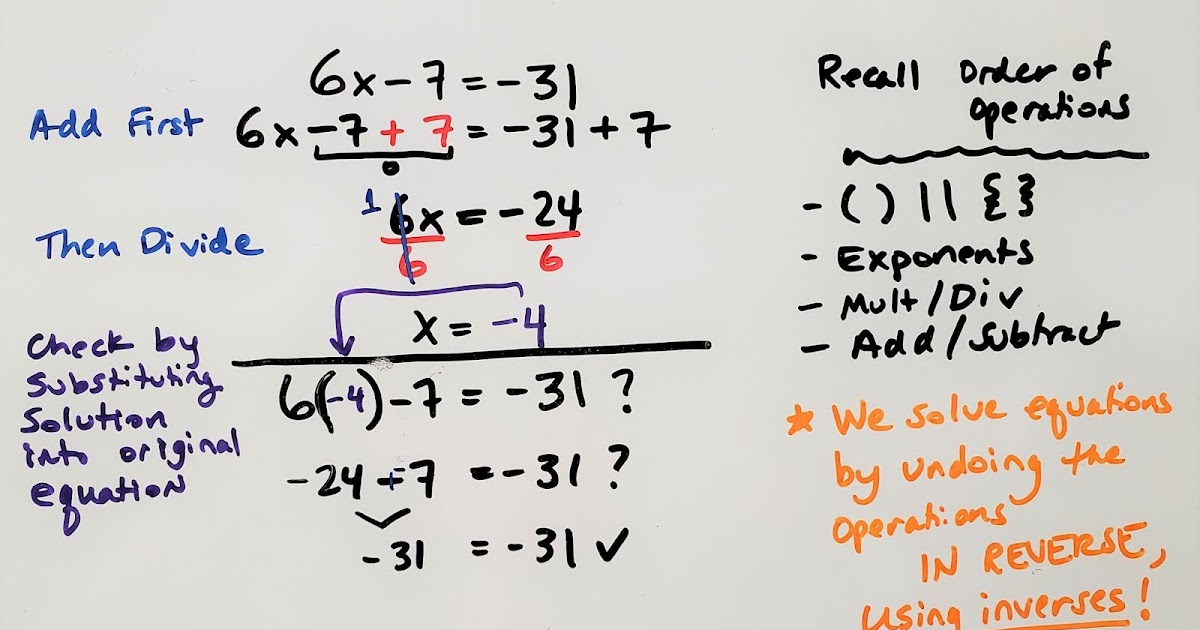 6x - 7 = -31
Add First 6x - 7 + 7 = -31 + 7
0
1
Then Divide 6x/6 = -24/6
x = -4
Check by
Substituting
Solution
into original
equation
6(-4) - 7 = -31 ?
-24 + -7 = -31 ?
-31 = -31 ✓
Recall Order of
Operations
- ( ) | | { }
- Exponents
- Mult/Div
- Add/Subtract
* We solve equations
by undoing the
Operations
IN REVERSE,
Using inverses!